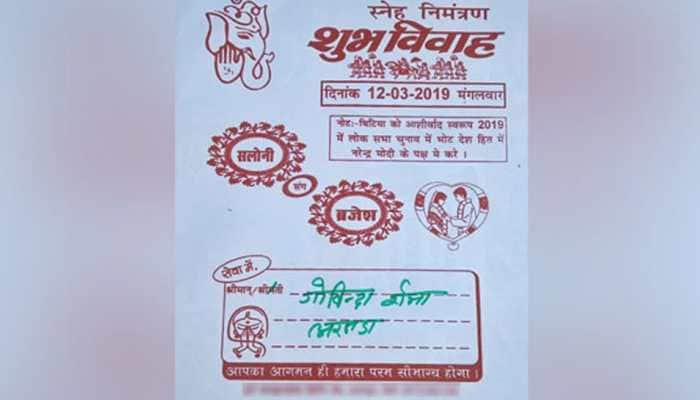 स्नेह निमंत्रण
शुभ विवाह
दिनांक 12-03-2019 मंगलवार
नोटः-बिटिया को आशीर्वाद स्वरूप 2019
में लोक सभा चुनाव में भोट देश हित में
नरेन्द्र मोदी के पक्ष मे करे ।
सलोनी
संग
ब्रजेश
सेवा में,
श्रीमान्/श्रीमती गोविन्दा
आपका आगमन ही हमारा परम सौभाग्य होगा ।